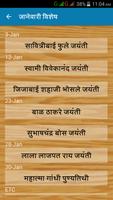 11:04 AM
जानेवारी विशेष
3-Jan
सावित्रीबाई फुले जयंती
12-Jan
स्वामी विवेकानंद जयंती
जिजाबाई शहाजी भोसले जयंती
बाळ ठाकरे जयंती
23-Jan
सुभाषचंद्र बोस जयंती
लाला लाजपत राय जयंती
30-Jan
महात्मा गांधी पुण्यतिथी
ETC